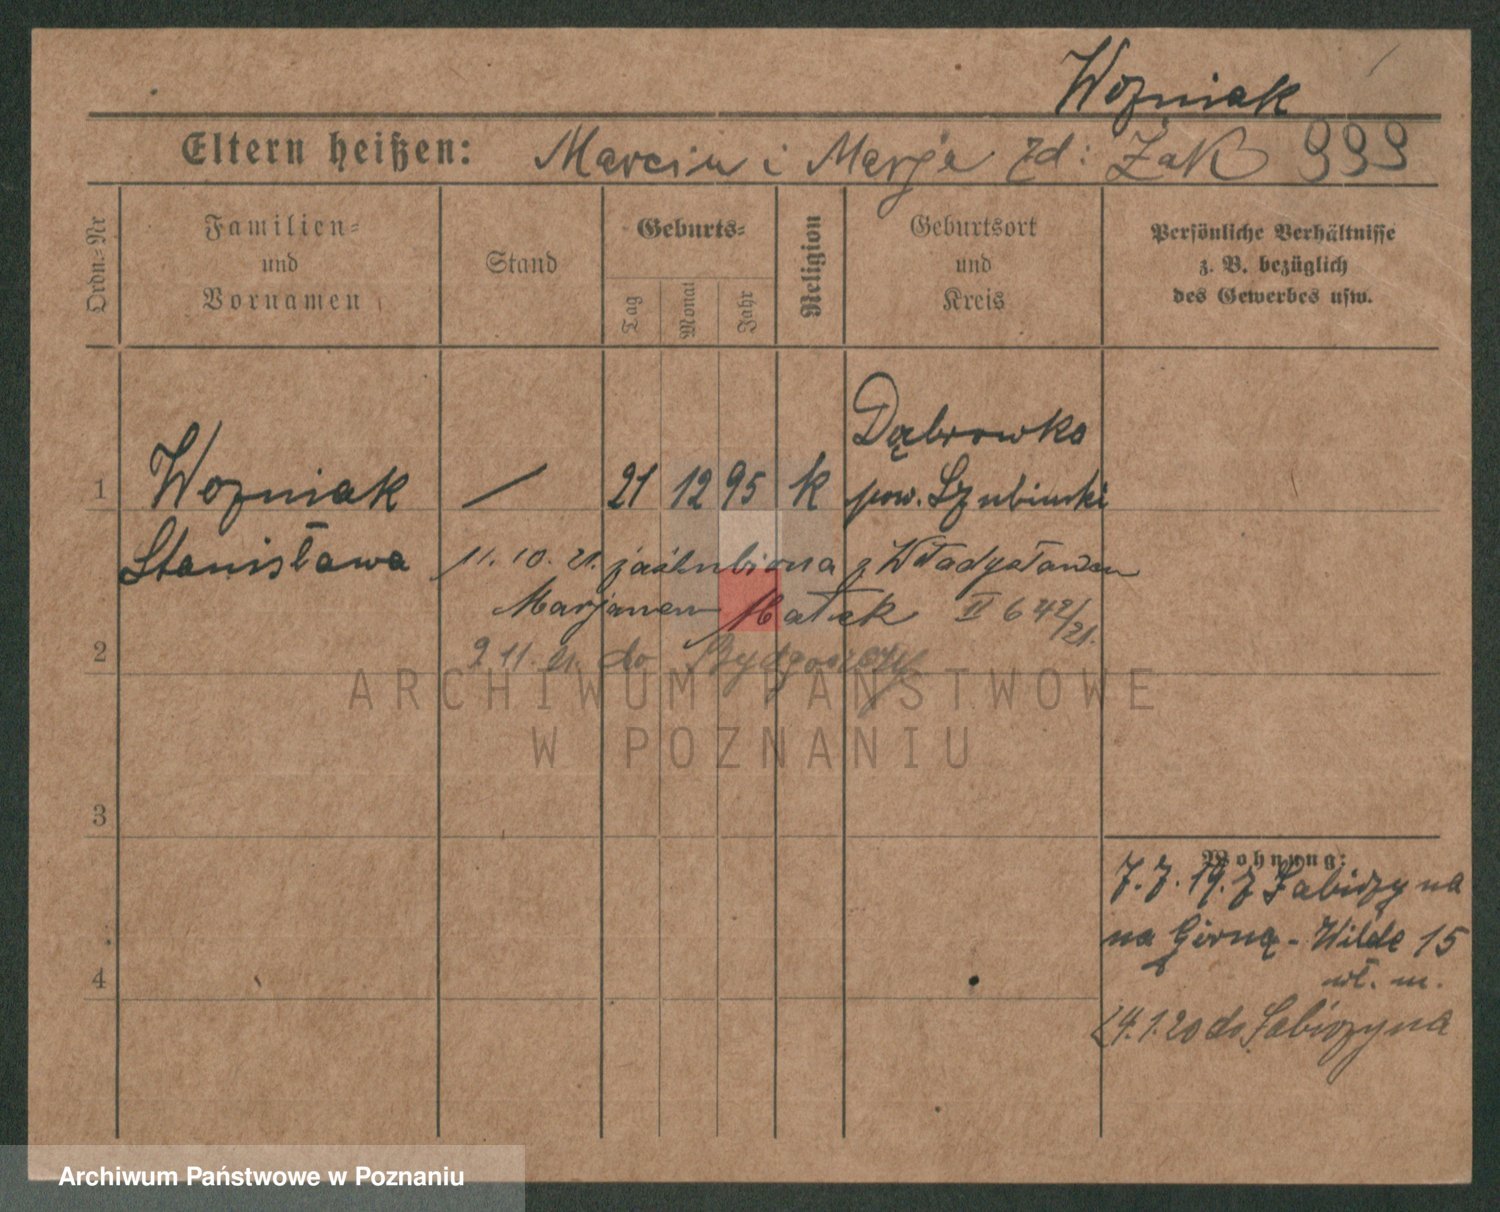 Wozniak
Eltern heißen: Marcin i Marja zd: Żak 999
Ordn.-Nr
Familien-
und
Vornamen
Stand
Geburts-
Tag
Monat
Jahr
Religion
Geburtsort
und
Kreis
Persönliche Verhältnisse
z. B. bezüglich
des Gewerbes usw.
Dąbrowka
1 Wozniak — 21 12 95 k pow. Szubinski
Stanisława 11. 10. 21. zaślubiona z Władysławem
Marjanem Małek II 642/21.
2 9. 11. 21. do Bydgoszczy
ARCHIWUM PAŃSTWOWE
W POZNANIU
3
Wohnung:
7. 7. 19. z Łabiszyna
na Górną - Wilde 15
wł. m.
4
24. 1. 20 do Łabiszyna
Archiwum Państwowe w Poznaniu